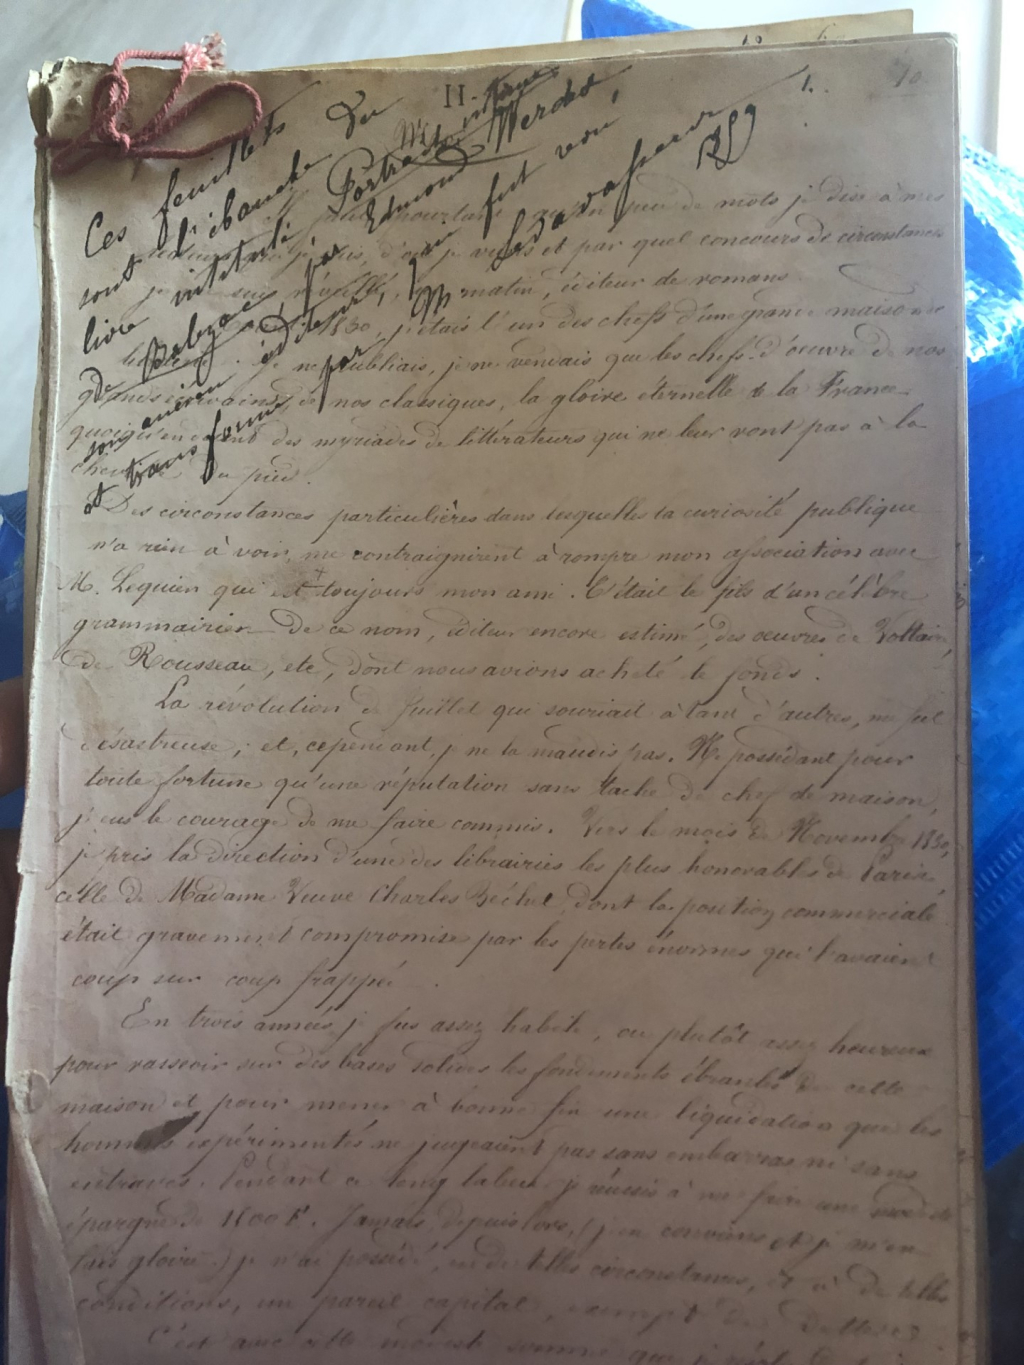 II.
Ces feuillets
sont l'ébauche du
livre intitulé Portrait intime
de Balzac, par Edmond Werdet,
son ancien éditeur, qui fut revu,
et transformé par M Ledavasseur
1.
pourtant qu'en peu de mots je dise à mes
je suis, d'où je viens et par quel concours de circonstances
je suis réveillé, matin, éditeur de romans.
1830, j'étais l'un des chefs d'une grande maison de
je ne publiais, je ne vendais que les chefs-d'oeuvre de nos
grands écrivains, de nos classiques, la gloire éternelle de la France
quoiqu'en des myriades de littérateurs qui ne leur vont pas à la
cheville du pied.
Des circonstances particulières dans lesquelles la curiosité publique
n'a rien à voir, me contraignirent à rompre mon association avec
M. Lequien qui est toujours mon ami. C'était le fils d'un célèbre
grammairien de ce nom, éditeur encore estimé, des oeuvres de Voltaire,
de Rousseau, etc, dont nous avions acheté le fonds.
La révolution de Juillet qui souriait à tant d'autres, me fut
désastreuse; et, cependant, je ne la maudis pas. Ne possédant pour
toute fortune qu'une réputation sans tache de chef de maison,
j'eus le courage de me faire commis. Vers le mois de Novembre 1830,
je pris la direction d'une des librairies les plus honorables de Paris,
celle de Madame Veuve Charles Béchet, dont la position commerciale
était gravement compromise par les pertes énormes qui l'avaient
coup sur coup frappé.
En trois années, je fus assez habile, ou plutôt assez heureux
pour rasseoir sur des bases solides les fondements ébranlés de cette
maison et pour mener à bonne fin une liquidation que les
hommes expérimentés ne jugeaient pas sans embarras ni sans
entraves. Pendant ce long labeur je réussis à me faire une
épargne de F. Jamais, depuis lors, (j'en conviens et je m'en
fais gloire) je n'ai possédé, en de telles circonstances, et à de telles
conditions, un pareil capital, exempt de dettes
C'est avec cette modeste somme que je